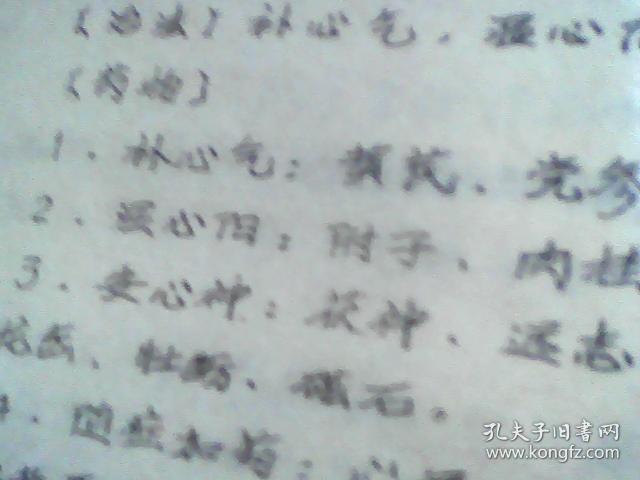 【治法】补心气，温心
【药物】
1．补心气：黄芪、党参
2．温心阳：附子、肉桂
3．安心神：茯神、远志
龙齿、牡蛎、磁石。
4．随症加
孔夫子旧书网
www.kongfz.com